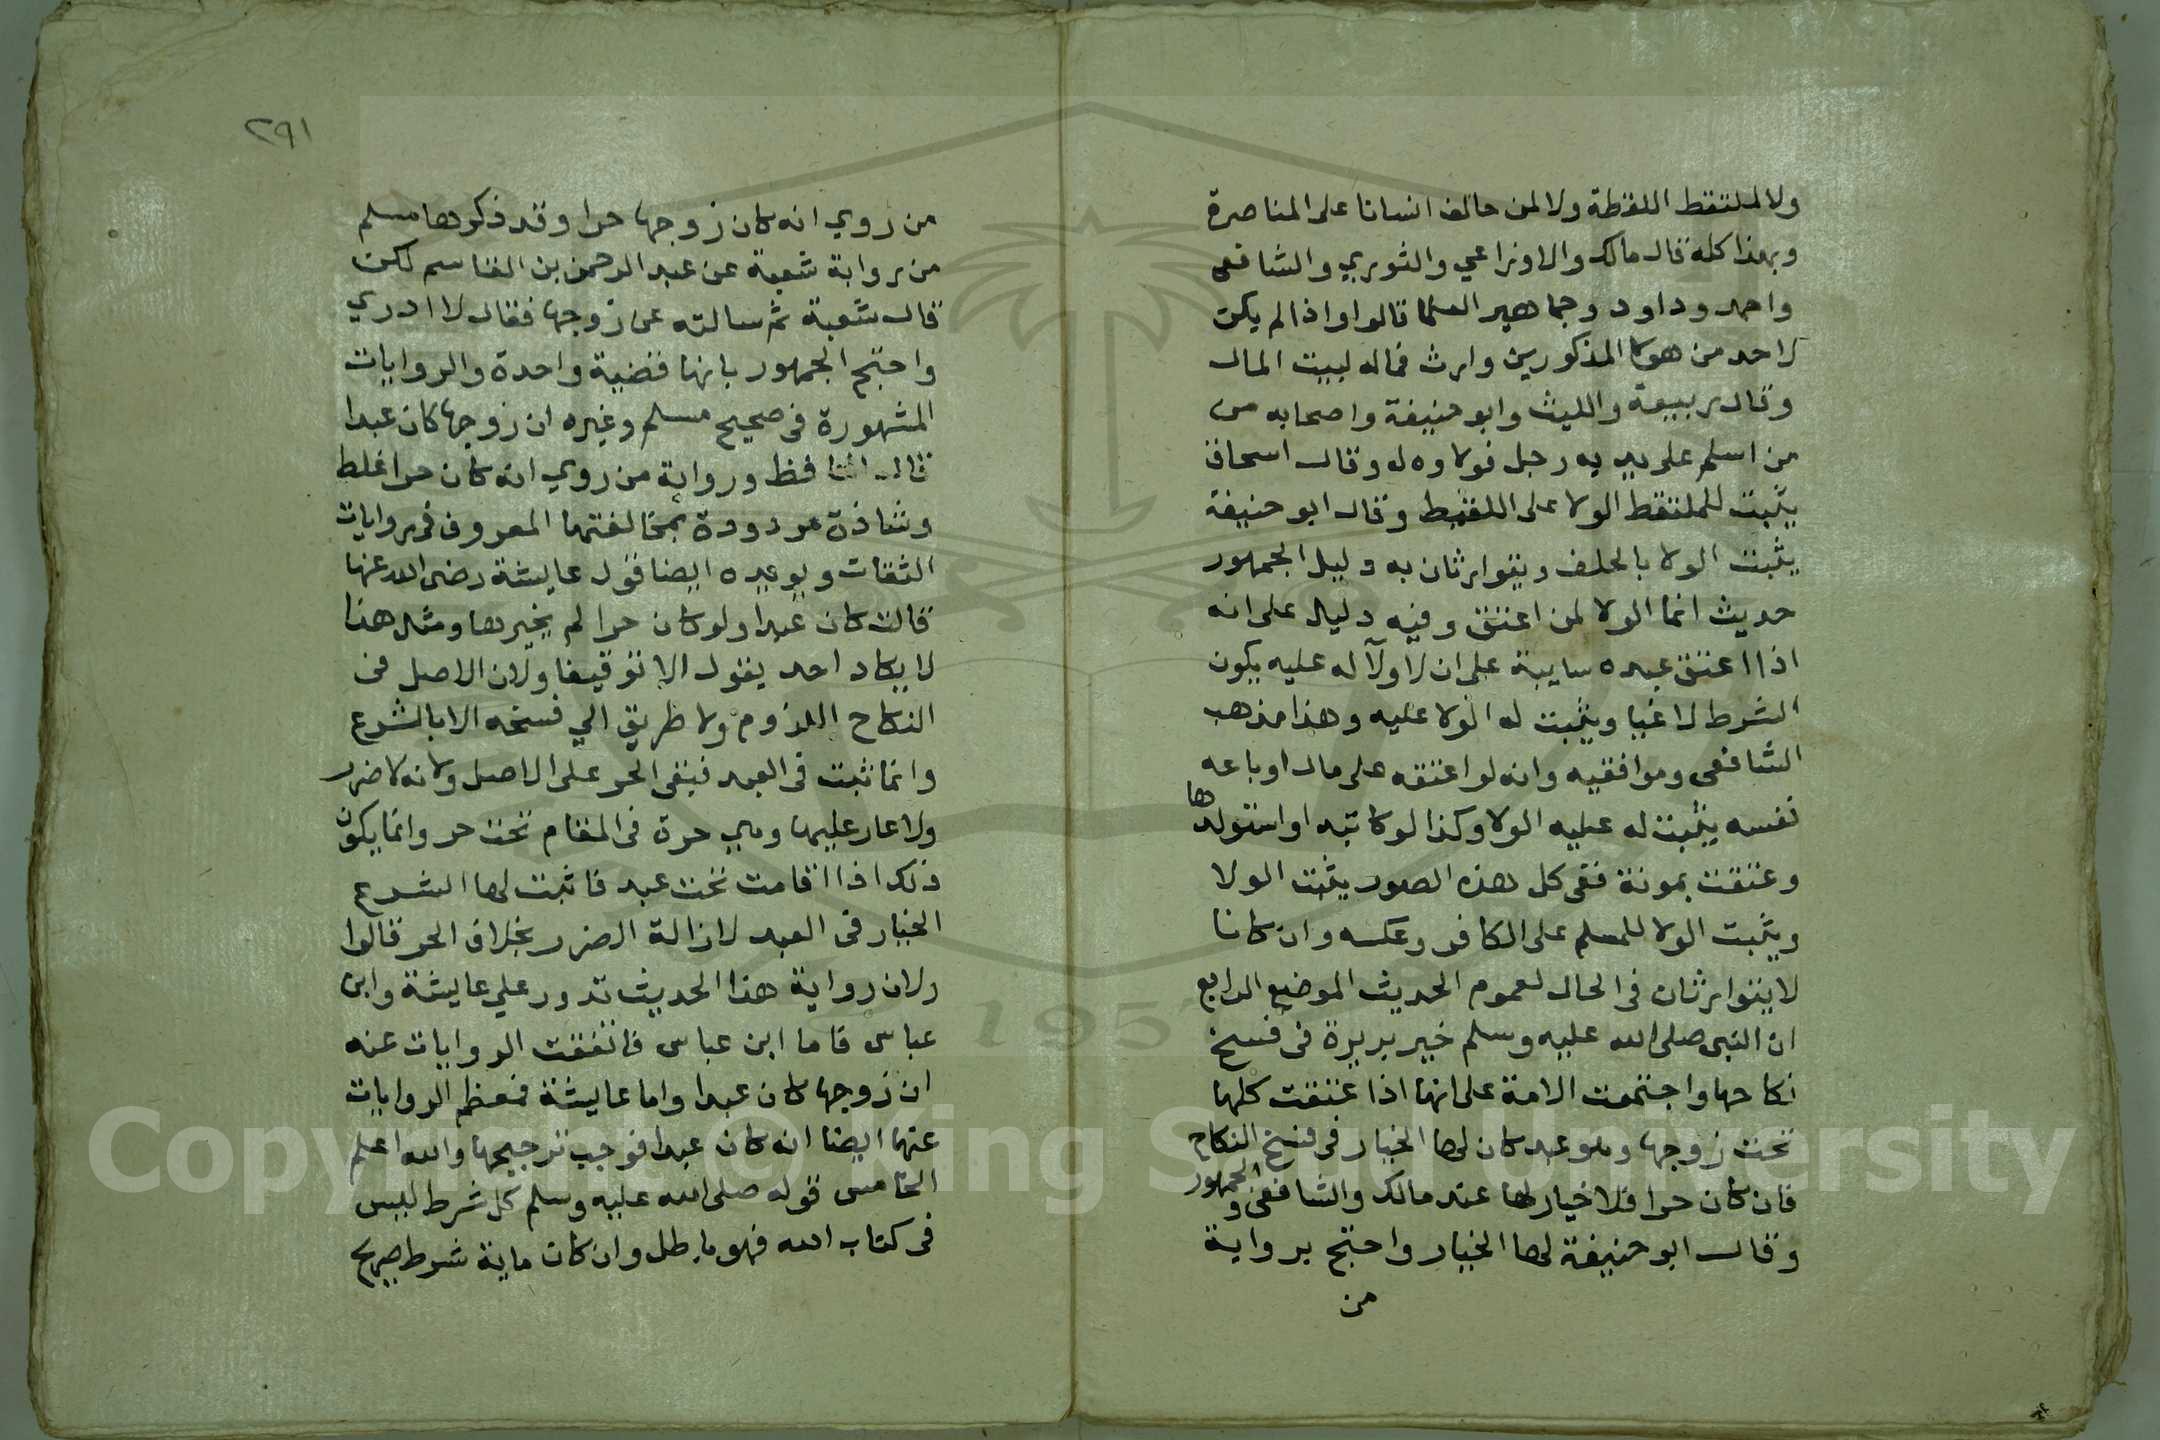 ولا لملتقط اللقطة ولا لمن حالف انسانا على المناصرة
وبهذا كله قال مالك والاوزاعي والثوري والشافعى
واحمد وداود وجماهير العلما قالوا واذا لم يكن
لاحد من هولا المذكورين وارث فماله لبيت المال
وقال ربيعة والليث وابو حنيفة واصحابه من
من اسلم على يديه رجل فولاوه له وقال اسحاق
يثبت للملتقط الولا على اللقيط وقال ابو حنيفة
يثبت الولا بالحلف ويتوارثان به دليل الجمهور
حديث انما الولا لمن اعتق وفيه دليل على انه
اذا اعتق عبده سايبة على ان لا ولآ له عليه يكون
الشرط لاغيا ويثبت له الولا عليه وهذا مذهب
الشافعى وموافقيه وانه لو اعتقه على مال او باعه
نفسه يثبت له عليه الولا وكذا لو كاتبه او استولدها
وعتقت بموته ففى كل هذه الصور يثبت الولا
ويثبت الولا للمسلم على الكافر وعكسه وان كانا
لا يتوارثان فى الحال لعموم الحديث الموضع الرابع
ان النبى صلى الله عليه وسلم خير بريرة فى فسخ
نكاحها واجتمعت الامة على انها اذا عتقت كلها
تحت زوجها وهو عبد كان لها الخيار فى فسخ النكاح
فان كان حرا فلا خيار لها عند مالك والشافعى والجمهور
وقال ابو حنيفة لها الخيار واحتج برواية
من
٢٩١
من روي انه كان زوجها حرا وقد ذكرها مسلم
من رواية شعبة عن عبد الرحمن بن القاسم لكن
قال شعبة ثم سالته عن زوجها فقال لا ادري
واحتج الجمهور بانها قضية واحدة والروايات
المشهورة فى صحيح مسلم وغيره ان زوجها كان عبدا
قال الحافظ ورواية من روي انه كان حرا غلط
وشاذة مردودة بمخالفتها المعروف فى روايات
الثقات ويويده ايضا قول عايشة رضى الله عنها
قالت كان عبدا ولو كان حرا لم يخيرها ومثل هذا
لا يكاد احد يقول الا توقيفا ولان الاصل فى
النكاح اللزوم ولا طريق الي فسخه الا بالشرع
وانما ثبت فى العبد فبقى الحر على الاصل ولانه لا ضرر
ولا عار عليها وهي حرة فى المقام تحت حر وانما يكون
ذلك اذا اقامت تحت عبد فاثبت لها الشرع
الخيار فى العبد لازالة الضرر بخلاف الحر قالوا
ولان رواية هذا الحديث تدور علي عايشة وابن
عباس فاما ابن عباس فاتفقت الروايات عنه
ان زوجها كان عبدا واما عايشة فمعظم الروايات
عنها ايضا انه كان عبدا فوجب ترجيحها والله اعلم
الخامس قوله صلى الله عليه وسلم كل شرط ليس
فى كتاب الله فهو باطل وان كان ماية شرط صريح
Copyright © King Saud University
1957